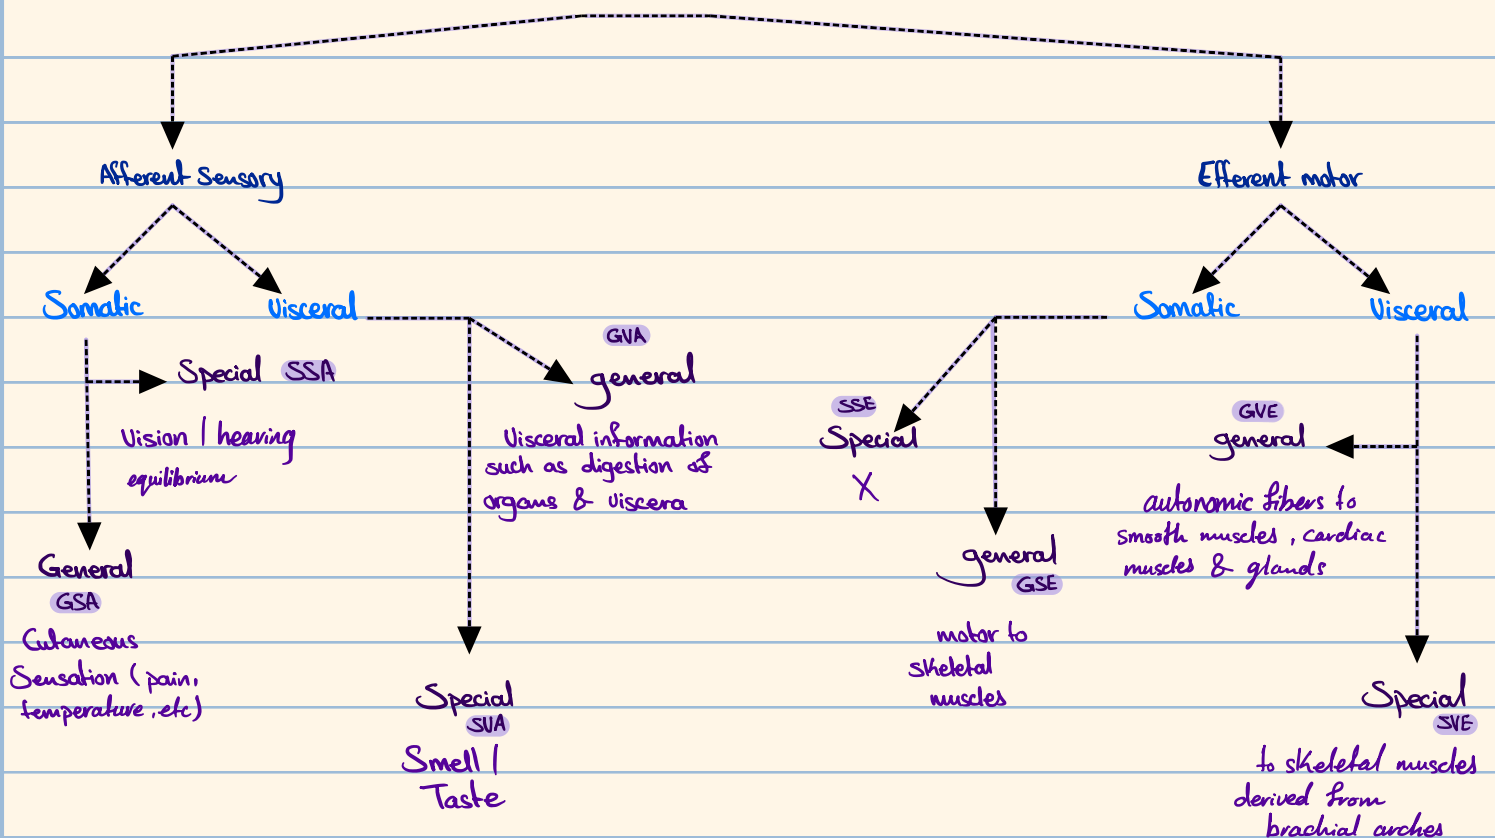 Afferent Sensory
Efferent motor
Somatic
Visceral
Somatic
Visceral
Special SSA
Vision / hearing
equilibrium
General
GSA
Cutaneous
Sensation (pain,
temperature, etc)
GVA
general
Visceral information
such as digestion of
organs & viscera
Special
SVA
Smell /
Taste
SSE
Special
X
general
GSE
motor to
skeletal
muscles
GVE
general
autonomic fibers to
smooth muscles, cardiac
muscles & glands
Special
SVE
to skeletal muscles
derived from
brachial arches